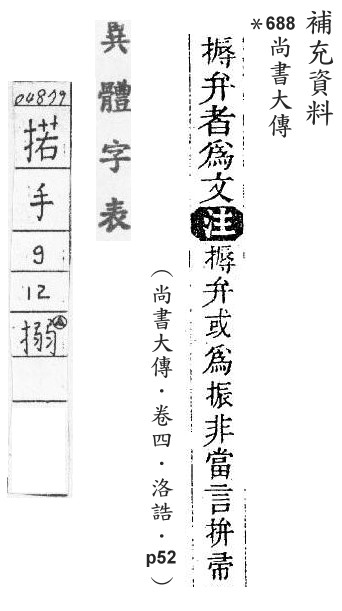 補充資料
*688
尚書大傳
搙弁者爲文注搙弁或爲振非當言拚帚
（尚書大傳．卷四．洛誥．p52）
異體字表
掿
手
9
12
搦